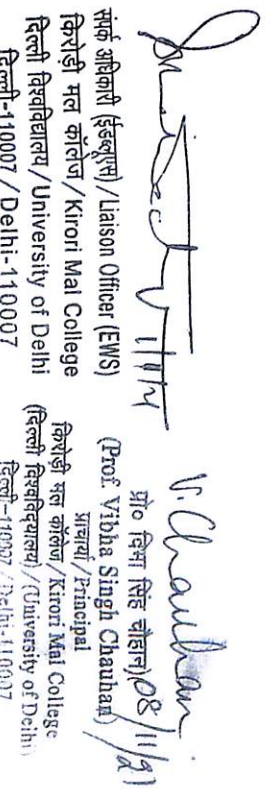 संपर्क अधिकारी (ईडब्ल्यूएस) / Liaison Officer (EWS)
किरोड़ी मल कॉलेज / Kirori Mal College
दिल्ली विश्वविद्यालय / University of Delhi
दिल्ली-110007 / Delhi-110007
V. Chauhan
08/11/21
प्रो० विभा सिंह चौहान)
(Prof. Vibha Singh Chauhan)
प्राचार्या/Principal
किरोड़ी मल कॉलेज/Kirori Mal College
(दिल्ली विश्वविद्यालय)/(University of Delhi)
दिल्ली-110007/Delhi-110007